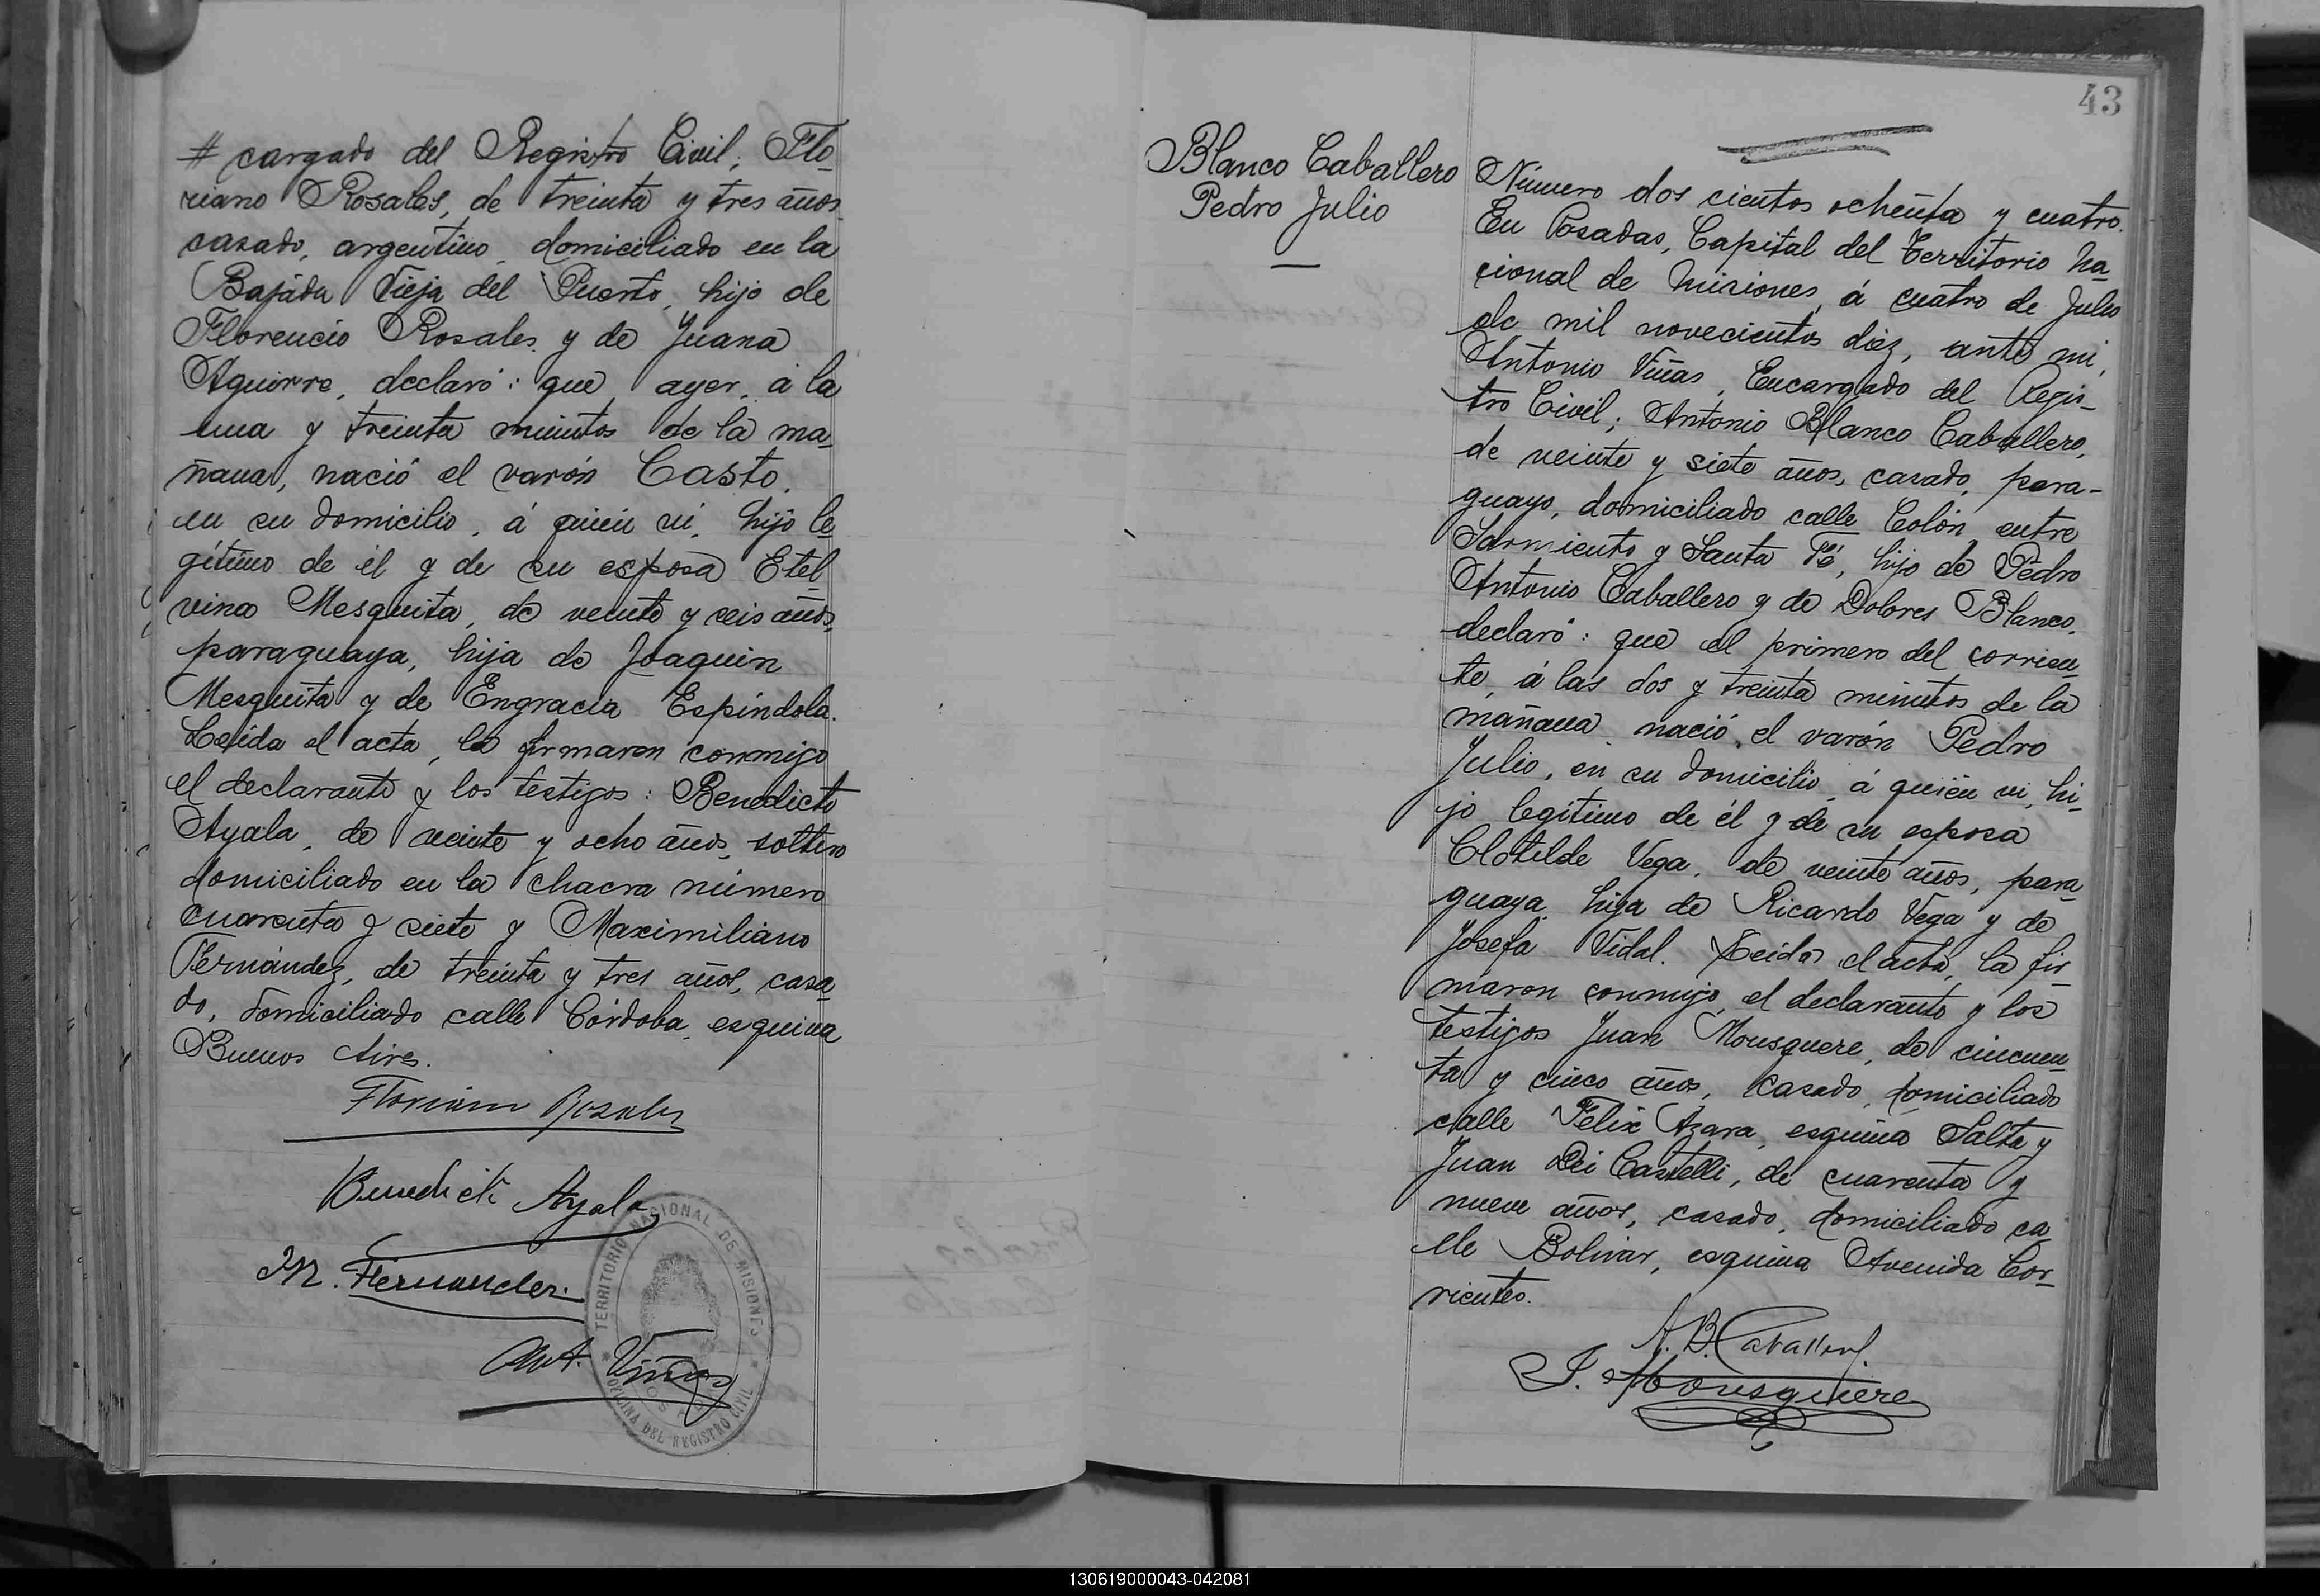 # cargado del Registro Civil; Flo-
riano Rosales, de treinta y tres años
casado, argentino, domiciliado en la
Bajada Vieja del Puerto, hijo de
Florencio Rosales y de Juana
Aguirre, declaró: que ayer, á la
una y treinta minutos de la ma-
ñana, nació el varón Casto,
en su domicilio, á quien vi, hijo le-
gítimo de él y de su esposa Etel-
vina Mesquita, de veinte y seis años,
paraguaya, hija de Joaquin
Mesquita y de Engracia Espíndola.
Leída el acta, la firmaron conmigo
el declarante y los testigos: Benedicto
Ayala, de veinte y ocho años, soltero
domiciliado en la chacra número
cuarenta y siete y Maximiliano
Fernández, de treinta y tres años, casa-
do, domiciliado calle Córdoba, esquina
Buenos Aires.
Floriano Rosales
Benedicto Ayala
M. Fernandez.
Ant. Viñas
TERRITORIO NACIONAL DE MISIONES
OFICINA DEL REGISTRO CIVIL
43
Blanco Caballero
Pedro Julio
Número dos cientos ochenta y cuatro.
En Posadas, Capital del Territorio Na-
cional de Misiones, á cuatro de Julio
de mil novecientos diez, ante mi,
Antonio Viñas, Encargado del Regis-
tro Civil; Antonio Blanco Caballero,
de veinte y siete años, casado, para-
guayo, domiciliado calle Colón entre
Sarmiento y Santa Fé, hijo de Pedro
Antonio Caballero y de Dolores Blanco,
declaró: que el primero del corrien-
te, á las dos y treinta minutos de la
mañana nació, el varón Pedro
Julio, en su domicilio, á quién vi, hi-
jo legítimo de él y de su esposa
Clotilde Vega, de veinte años, para-
guaya, hija de Ricardo Vega y de
Josefa Vidal. Leída el acta, la fir-
maron conmigo, el declarante y los
testigos Juan Mousquere, de cincuen-
ta y cinco años, casado, domiciliado
calle Felix Azara, esquina Salta y
Juan Dei Castelli, de cuarenta y
nueve años, casado, domiciliado ca-
lle Bolivar, esquina Avenida Cor-
rientes.
A. B. Caballero
J. Mousquere
130619000043-042081